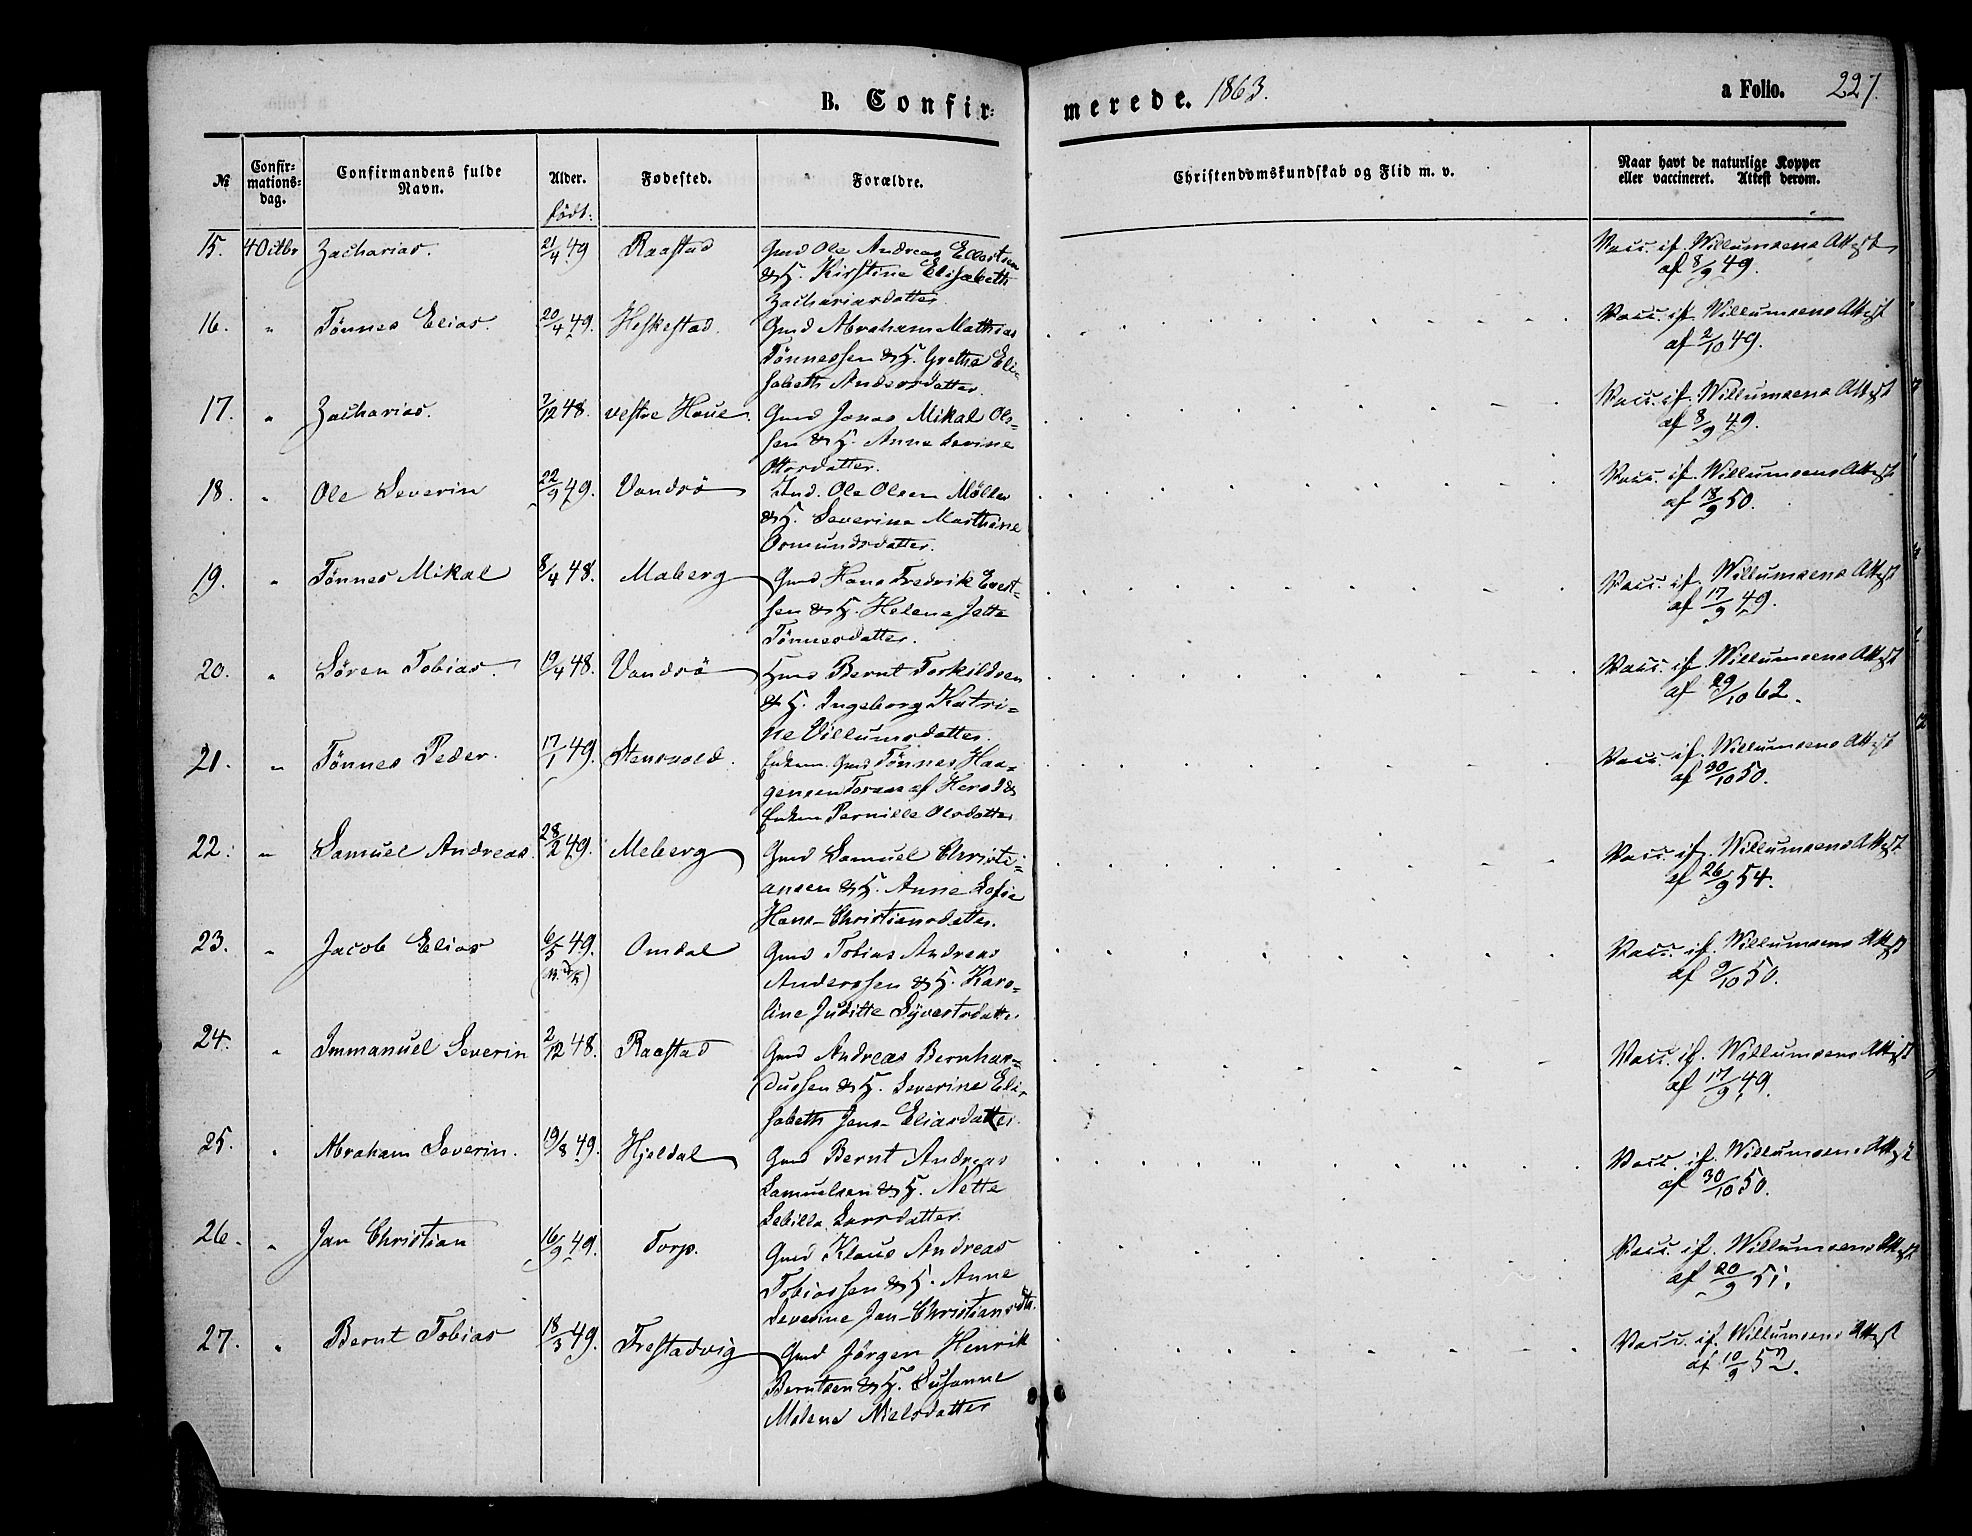 B. Confir-
merede. 1863.
a Folio. 227.
№
Confir-
mations-
dag.
Confirmandens fulde
Navn.
Alder.
født:
Fødested.
Forældre.
Christendomskundskab og Flid m. v.
Naar havt de naturlige Kopper
eller vaccineret. Attest derom.
15. 4 Octbr Zacharias. 21/4 49 Raastad Gmd Ole Andreas Ellertsen
& H. Kirstine Elisabeth
Zachariasdatter.
Vacc. if. Willumsens Attest
af 8/9 49.
16. " Tönnes Elias. 20/4 49. Heskestad. Gmd Abraham Mathias
Tönnessen & H. Grethe Eli-
sabeth Andersdatter.
Vacc. if. Willumsens Attest
af 2/10 49.
17. " Zacharias. 7/12 48. vestre Haue. Gmd Jonas Mikal Ols-
sen & H. Anne Levine
Ottersdatter.
Vacc. if. Willumsens Attest
af 8/9 49.
18. " Ole Severin 22/9 49. Vandsö Ind. Ole Olsen Möller
& H. Severine Marthine
Osmundsdatter.
Vacc. if. Willumsens Attest
af 18/9 50.
19. " Tönnes Mikal 8/4 48. Maberg Gmd Hans Fredrik Evert-
sen & H. Helene Jette
Tönnesdatter.
Vacc. if. Willumsens Attest
af 17/9 49.
20. " Sören Tobias. 19/4 48. Vandsö Hmd Bernt Torkildsen
& H. Ingeborg Katri-
ne Villumsdatter.
Vacc. if. Willumsens Attest
af 29/10 62.
21. " Tönnes Peder. 17/1 49. Stensvold. Enkem. Gmd Tönnes Haa-
gensen Torsas af Herad &
Enken Pernille Olsdatter
Vacc. if. Willumsens Attest
af 30/10 50.
22. " Samuel Andreas. 28/2 49. Meberg Gmd Samuel Christi-
ansen & H. Anne Sofie
Hans-Christiansdatter.
Vacc. if. Willumsens Attest
af 26/9 54.
23. " Jacob Elias 6/5 49. Omdal Gmd Tobias Andreas
Anderssen & H. Karo-
line Juditte Syvertsdatter.
Vacc. if. Willumsens Attest
af 9/10 50.
24. " Immanuel Severin 2/12 48. Raastad Gmd Andreas Bernhar-
dussen & H. Severine Eli-
sabeth Jens-Eliasdatter.
Vacc. if. Willumsens Attest
af 17/9 49.
25. " Abraham Severin. 19/8 49. Hjeldal Gmd Bernt Andreas
Samuelsen & H. Nette
Sebille Larsdatter.
Vacc. if. Willumsens Attest
af 30/10 50.
26. " Jan Christian 16/9 49. Torp. Gmd Klaus Andreas
Tobiassen & H. Anne
Severine Jan-Christiansdtr.
Vacc. if. Willumsens Attest
af 20/9 51.
27. " Bernt Tobias 18/3 49. Frestadvig Gmd Jörgen Henrik
Berntsen & H. Susanne
Malene Nielsdatter
Vacc. if. Willumsens Attest
af 10/9 52.